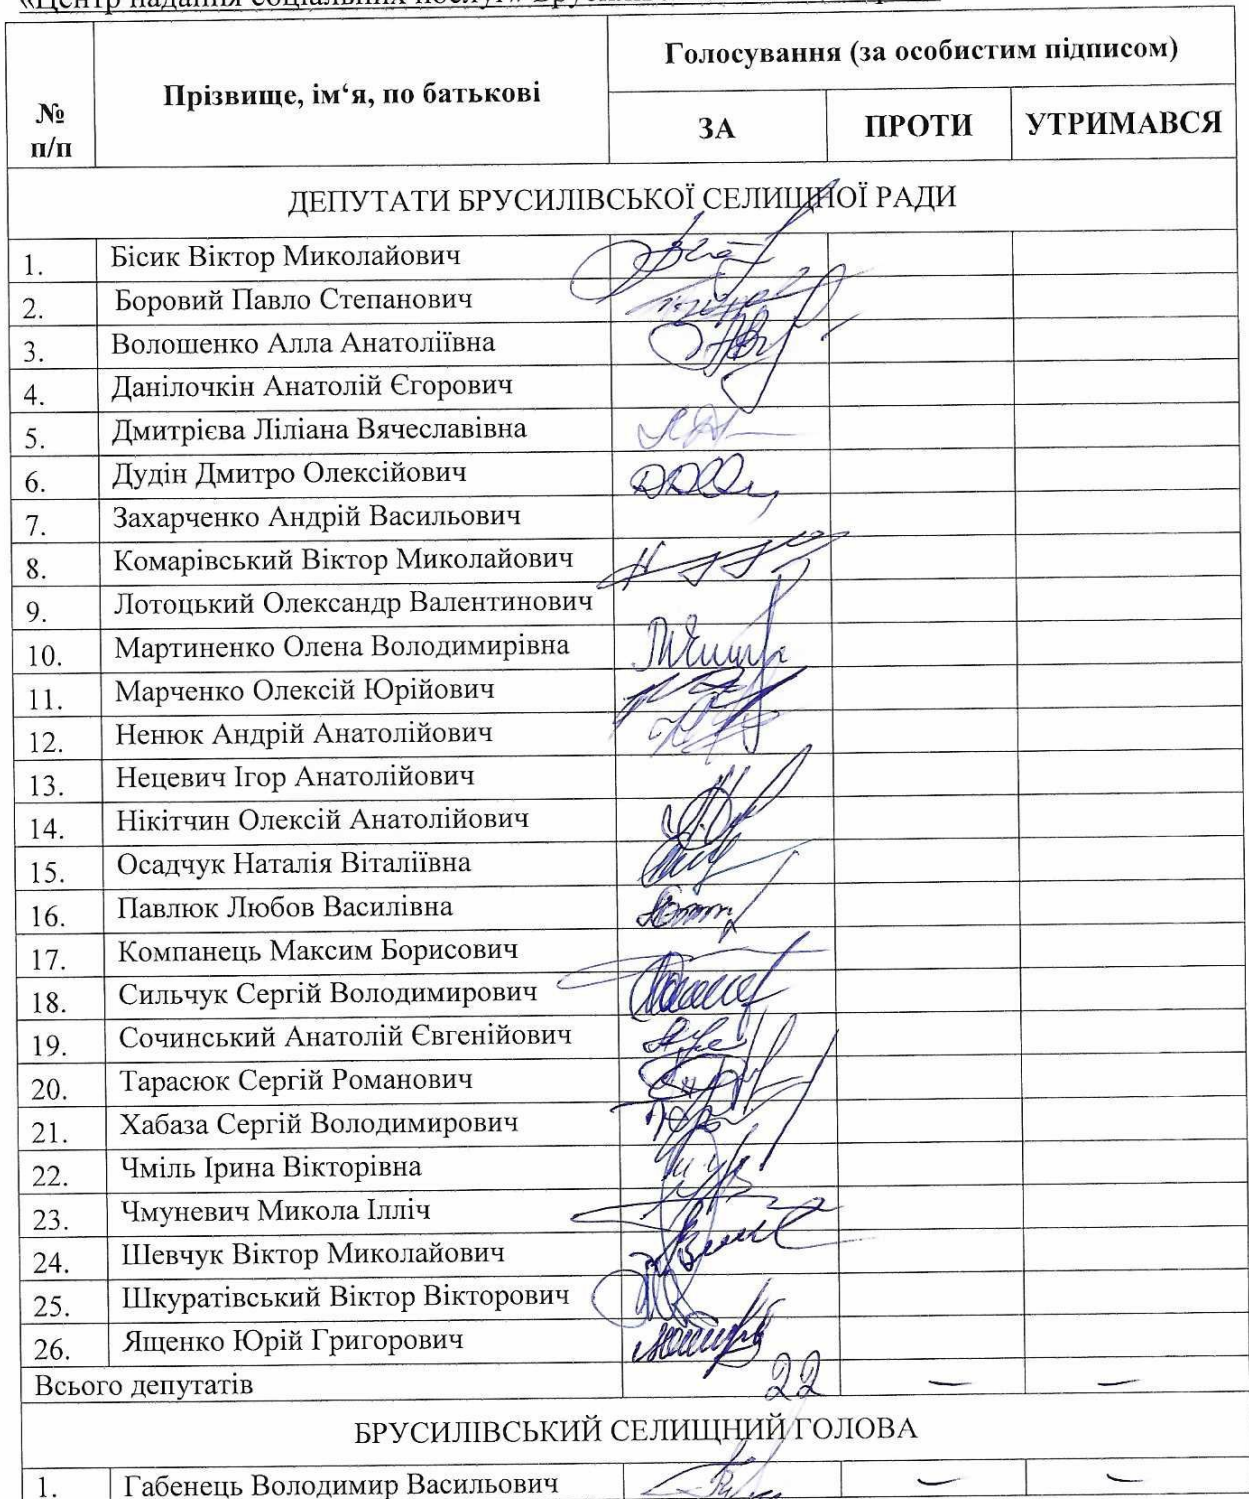 «Центр надання соціальних послуг»
№ п/п
Прізвище, ім‘я, по батькові
Голосування (за особистим підписом)
ЗА
ПРОТИ
УТРИМАВСЯ
ДЕПУТАТИ БРУСИЛІВСЬКОЇ СЕЛИЩНОЇ РАДИ
1. Бісик Віктор Миколайович
2. Боровий Павло Степанович
3. Волошенко Алла Анатоліївна
4. Данілочкін Анатолій Єгорович
5. Дмитрієва Ліліана Вячеславівна
6. Дудін Дмитро Олексійович
7. Захарченко Андрій Васильович
8. Комарівський Віктор Миколайович
9. Лотоцький Олександр Валентинович
10. Мартиненко Олена Володимирівна
11. Марченко Олексій Юрійович
12. Ненюк Андрій Анатолійович
13. Нецевич Ігор Анатолійович
14. Нікітчин Олексій Анатолійович
15. Осадчук Наталія Віталіївна
16. Павлюк Любов Василівна
17. Компанець Максим Борисович
18. Сильчук Сергій Володимирович
19. Сочинський Анатолій Євгенійович
20. Тарасюк Сергій Романович
21. Хабаза Сергій Володимирович
22. Чміль Ірина Вікторівна
23. Чмуневич Микола Ілліч
24. Шевчук Віктор Миколайович
25. Шкуратівський Віктор Вікторович
26. Ященко Юрій Григорович
Всього депутатів 22 — —
БРУСИЛІВСЬКИЙ СЕЛИЩНИЙ ГОЛОВА
1. Габенець Володимир Васильович — —